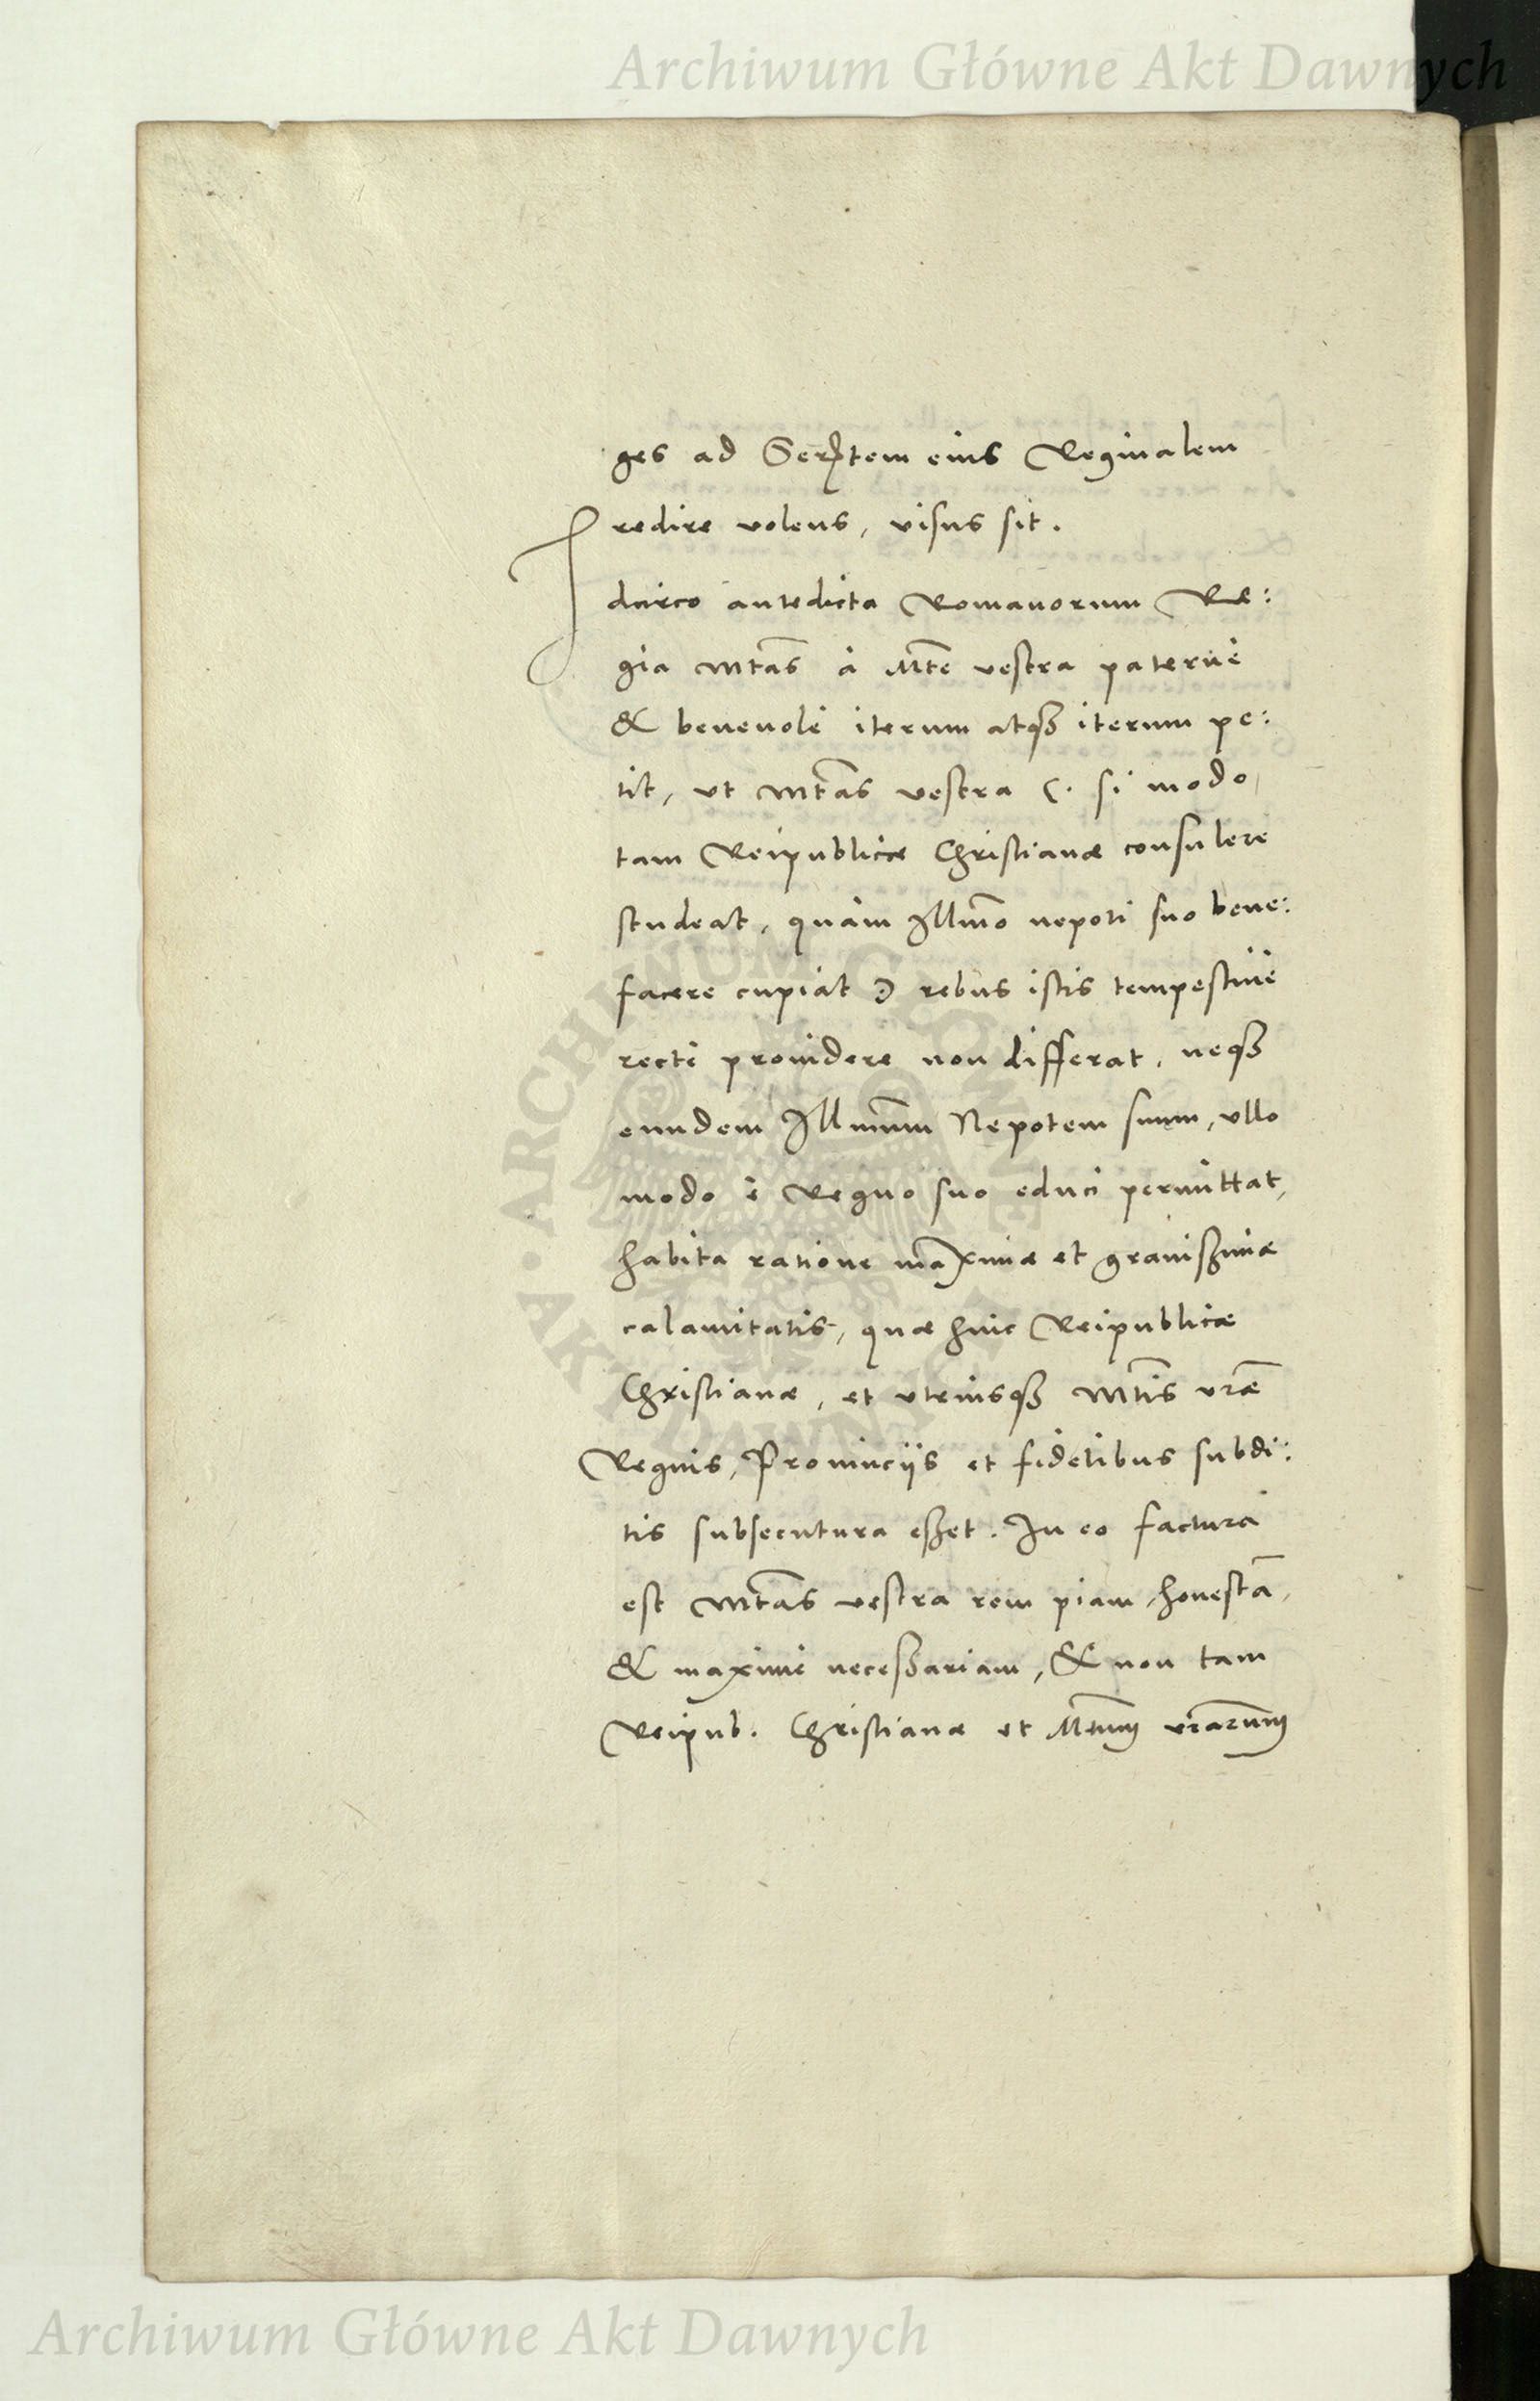 Archiwum Główne Akt Dawnych
ges ad Serᵗem eius Reginalem
redire volens, visus sit.
Idcirco antedicta Romanorum Re:
gia Mtas à Mte vestra paternè
& beneuolè iterum atq iterum pe:
tit, vt Mtas vestra (. si modo
tam Reipublicæ Christianæ consulere
studeat, quàm Illmo nepoti suo bene:
facere cupiat .) rebus istis tempestiuè
rectè prouidere non differat, neq
eundem Illmum Nepotem suum, vllo
modo è Regno suo educi permittat,
habita ratione maximæ et grauißimæ
calamitatis, quæ huic Reipublicæ
Christianæ, et vtriusq Mtis vræ
Regnis, Prouincijs et fidelibus subdi:
tis subsecutura eßet. In eo factura
est Mtas vestra rem piam, honestā,
& maximè neceßariam, & non tam
Reipub. Christianæ et Mtum vrarum
ARCHIWUM GŁÓWNE
AKT DAWNYCH
Archiwum Główne Akt Dawnych